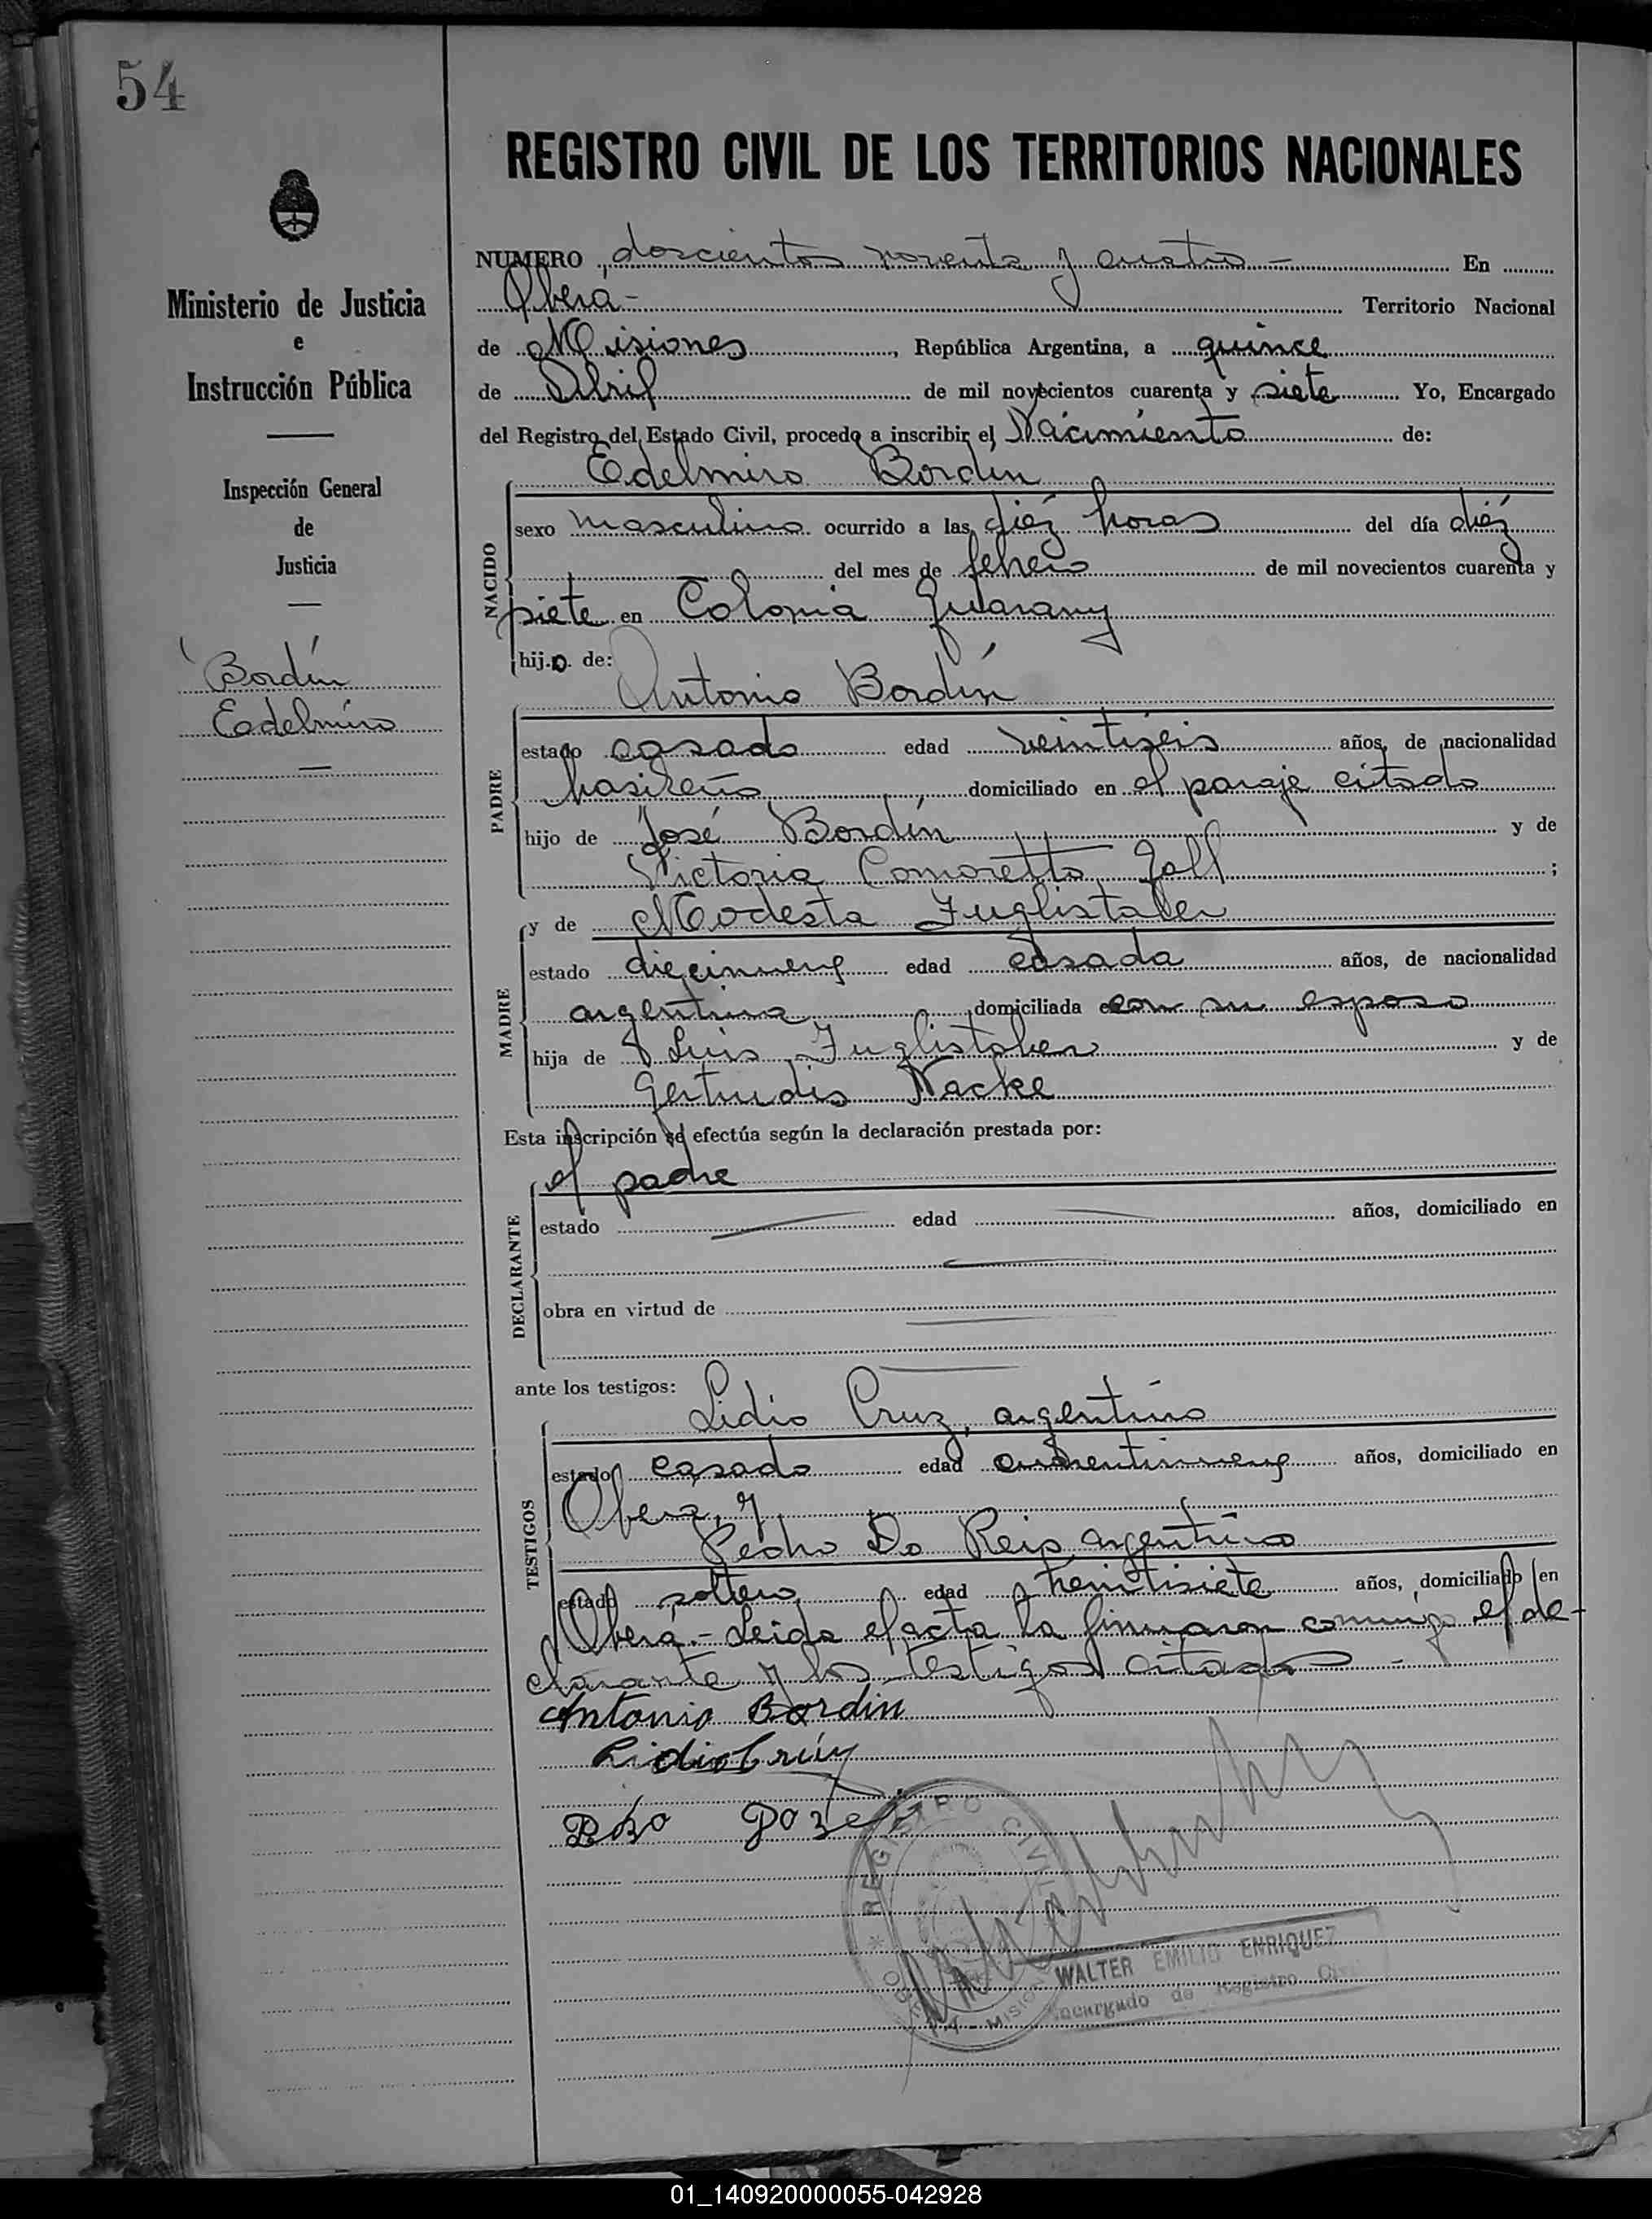 54
REGISTRO CIVIL DE LOS TERRITORIOS NACIONALES
Ministerio de Justicia
e
Instrucción Pública
Inspección General
de
Justicia
Bordín
Edelmiro
NUMERO doscientos noventa y cuatro - En
Oberá - Territorio Nacional
de Misiones, República Argentina, a quince
de Abril de mil novecientos cuarenta y siete Yo, Encargado
del Registro del Estado Civil, procedo a inscribir el Nacimiento de:
Edelmiro Bordín
NACIDO
sexo masculino ocurrido a las diéz horas del día diéz
del mes de febrero de mil novecientos cuarenta y
siete en Colonia Guarany
hijo de:
Antonio Bordín
PADRE
estado casado edad veintiséis años, de nacionalidad
brasileño domiciliado en el paraje citado
hijo de José Bordín y de
Victoria Comoretto ;
MADRE
y de Modesta Fuglistaler
estado diecinueve edad casada años, de nacionalidad
argentina domiciliada con su esposo
hija de Luis Fuglistaler y de
Gertrudis Nacke
Esta inscripción se efectúa según la declaración prestada por:
el padre
DECLARANTE
estado edad años, domiciliado en
obra en virtud de
ante los testigos:
Lidio Cruz, argentino
TESTIGOS
estado casado edad años, domiciliado en
Oberá, y
Pedro Do Reis argentino
estado soltero edad treintisiete años, domiciliado en
Oberá.- Leída el acta la firmaron conmigo el de-
clarante y los testigos citados -
Antonio Bordin
Lidio Cruz
REGISTRO CIVIL
OBERA - MISIONES
WALTER EMILIO ENRIQUEZ
Encargado de Registro Civil
01_140920000055-042928